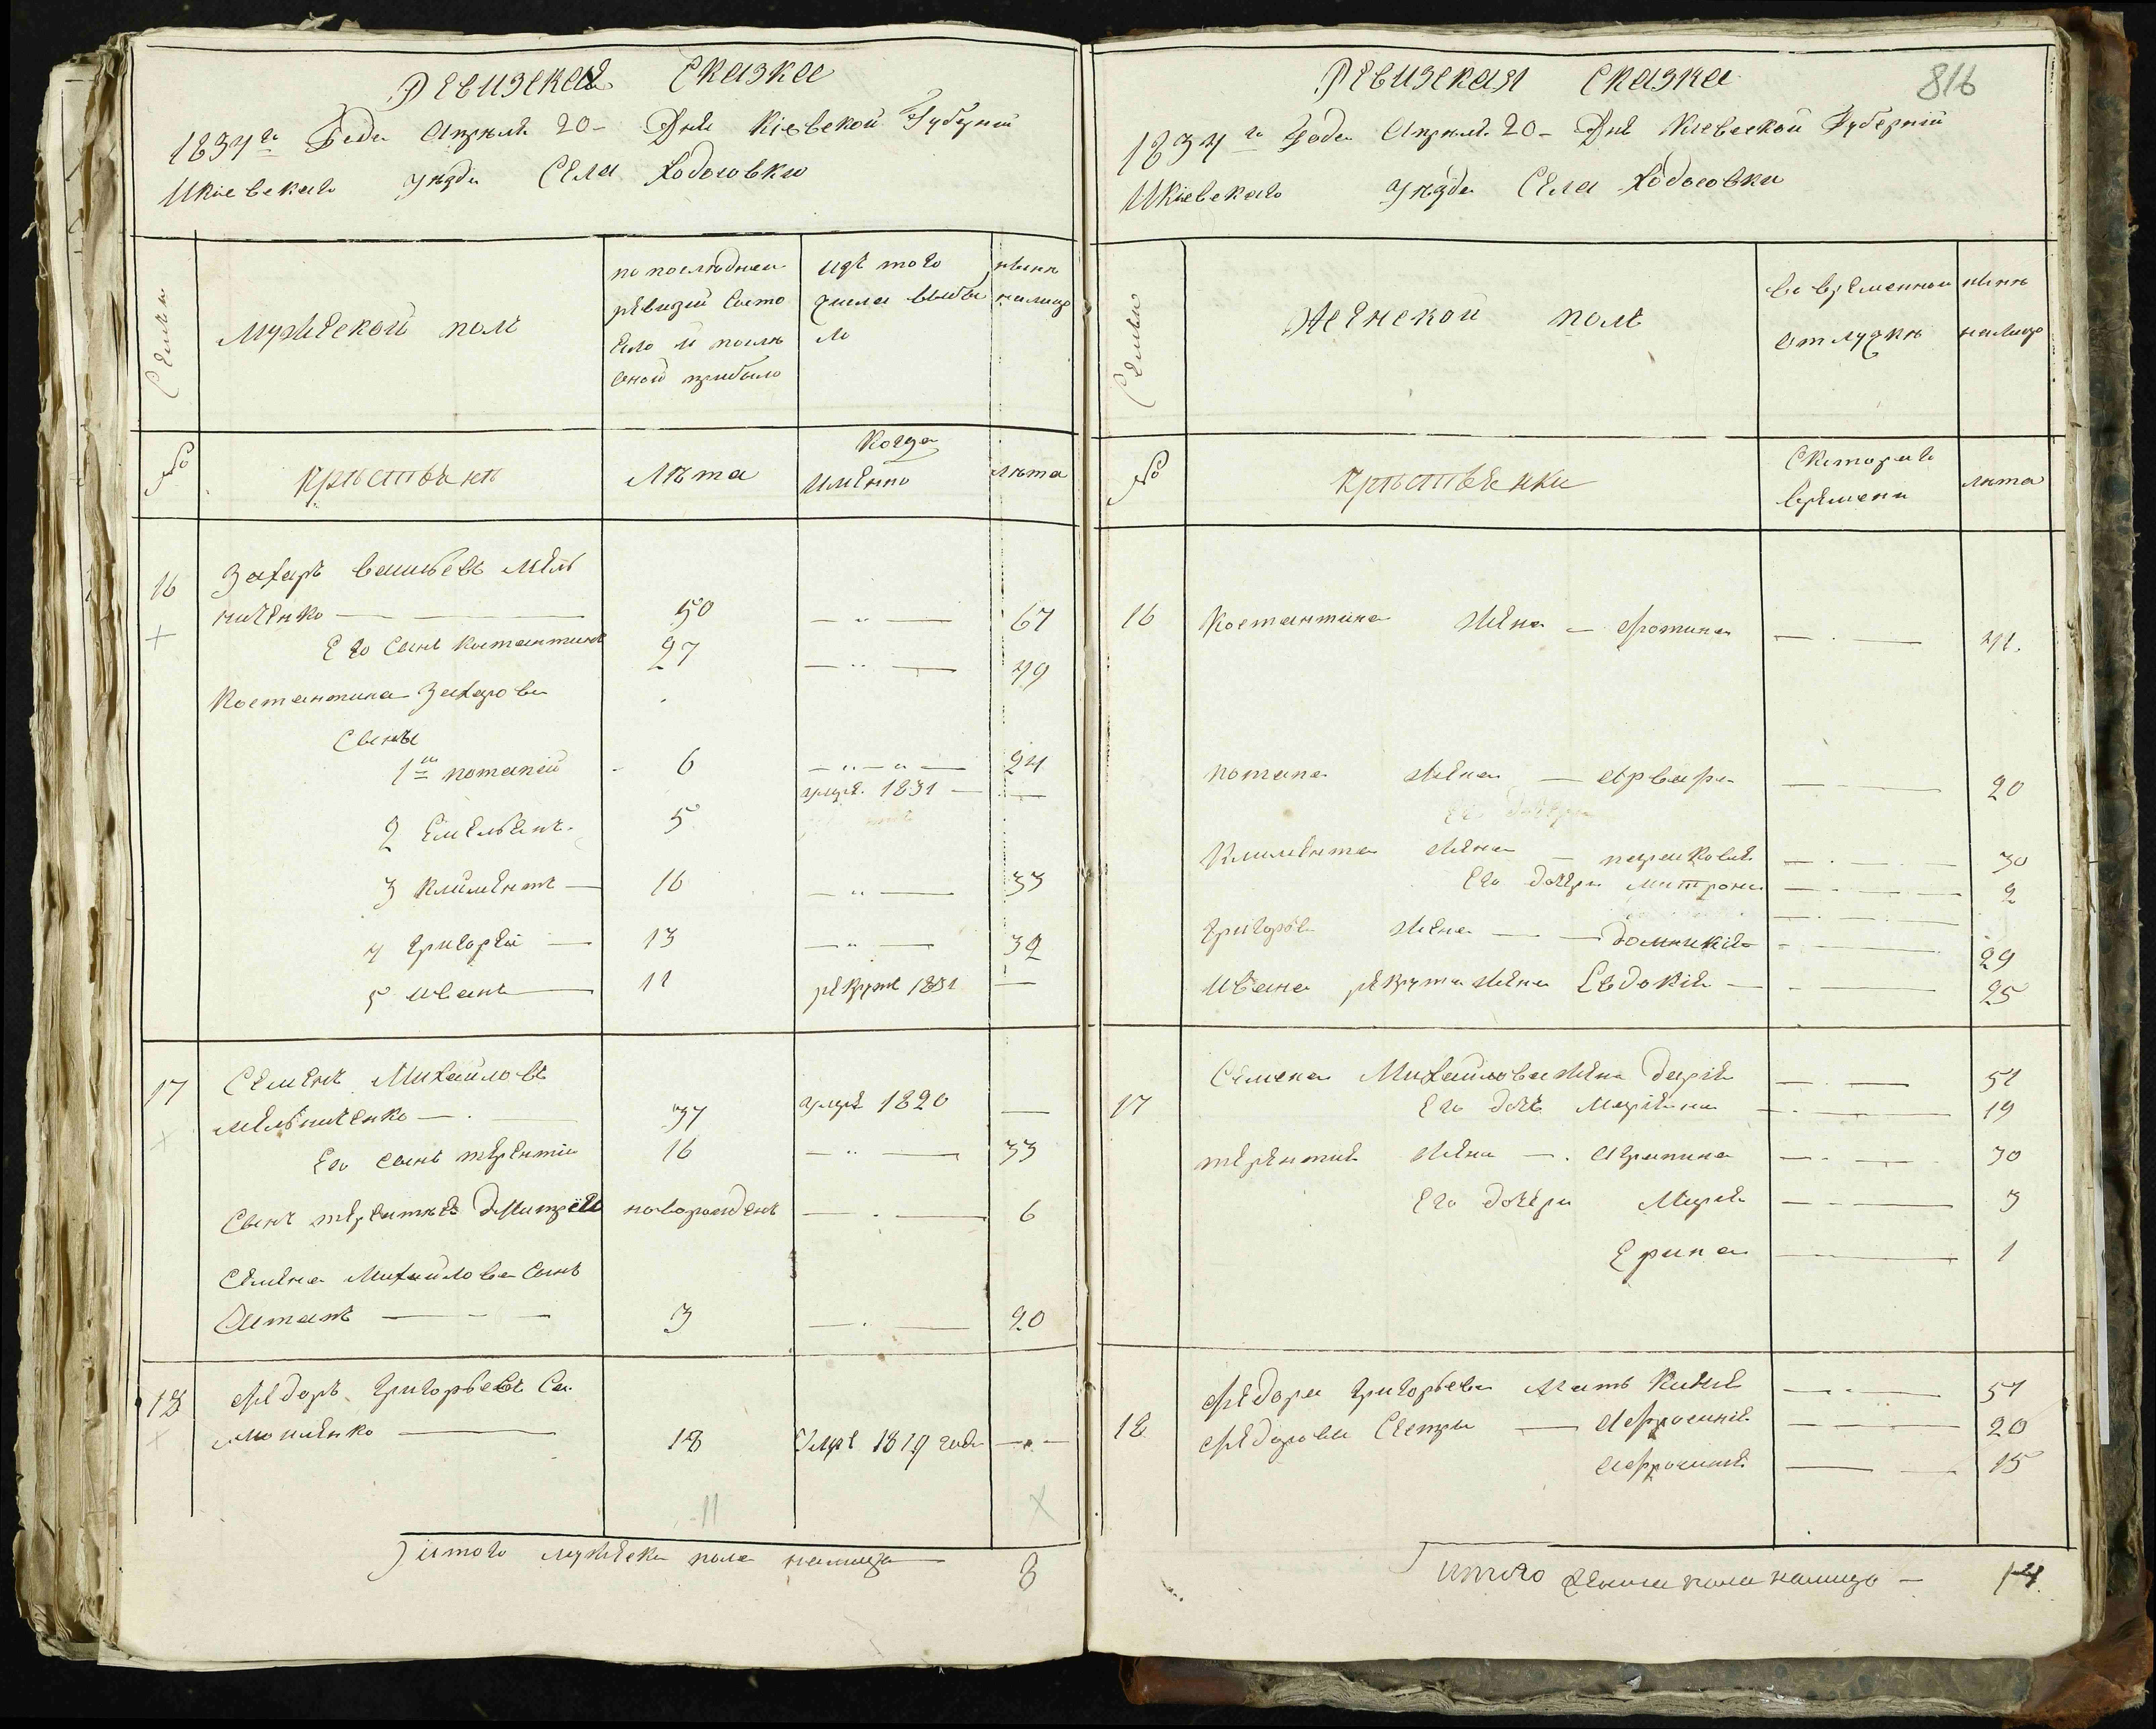 Ревизская Сказка
1834го Года Апреля 20- Дня Кіевской Губерніи
ИКіевскаго уезда Села Ходосовки
Семьи
Мужеской полъ
по последней
ревизіи состо
яло и после
оной прибыло
изъ того
числа выбы
ло
ныне
налицо
№
крестьяне
Лета
Когда
Имянно
лета
16
Захаръ васильевъ Мель
ниченко
50
67
Его Сынъ Костантинъ
27
49
Костантина Захарова
Сыны
1й потапей
6
24
2 Емельянъ
5
умре. 1831
3 Климентъ
16
33
4 григорей
13
32
5 иванъ
11
рекрутъ 1831
17
Семенъ Михайловъ
Мельниченко
37
умре 1820
Его сынъ терентій
16
33
Сынъ терентіевъ Дмитрей
новорожденъ
6
Семена Михайлова Сынъ
Остапъ
3
20
18
Федоръ григорьевъ Са
мойленко
18
Умре 1819 года
11
итого мужеска пола налицо
8
816
Ревизская Сказка
1834го Года Апреля 20- Дня Киевской Губерніи
ИКіевскаго уезда Села Ходосовки
Семьи
Женской полъ
во временной
отлучке
ныне
налицо
№
крестьянки
Скотораго
времени
лета
16
Костантина жена Фотина
41.
потапа жена варвара
20
Климента жена парасковія
30
Его дочери матрона
2
григорія жена Домникія
29
Ивана рекрута жена Евдокія
25
17
Семена Михайлова жена Дарія
51
Его дочь Маріяна
19
терентия жена Агрипина
30
Его дочери Марія
3
Ерина
1
18
Федора григорьева мать
51
Федоровы Сестры Афросинія
20
Афросинія
15
итого женска пола налицо
14.